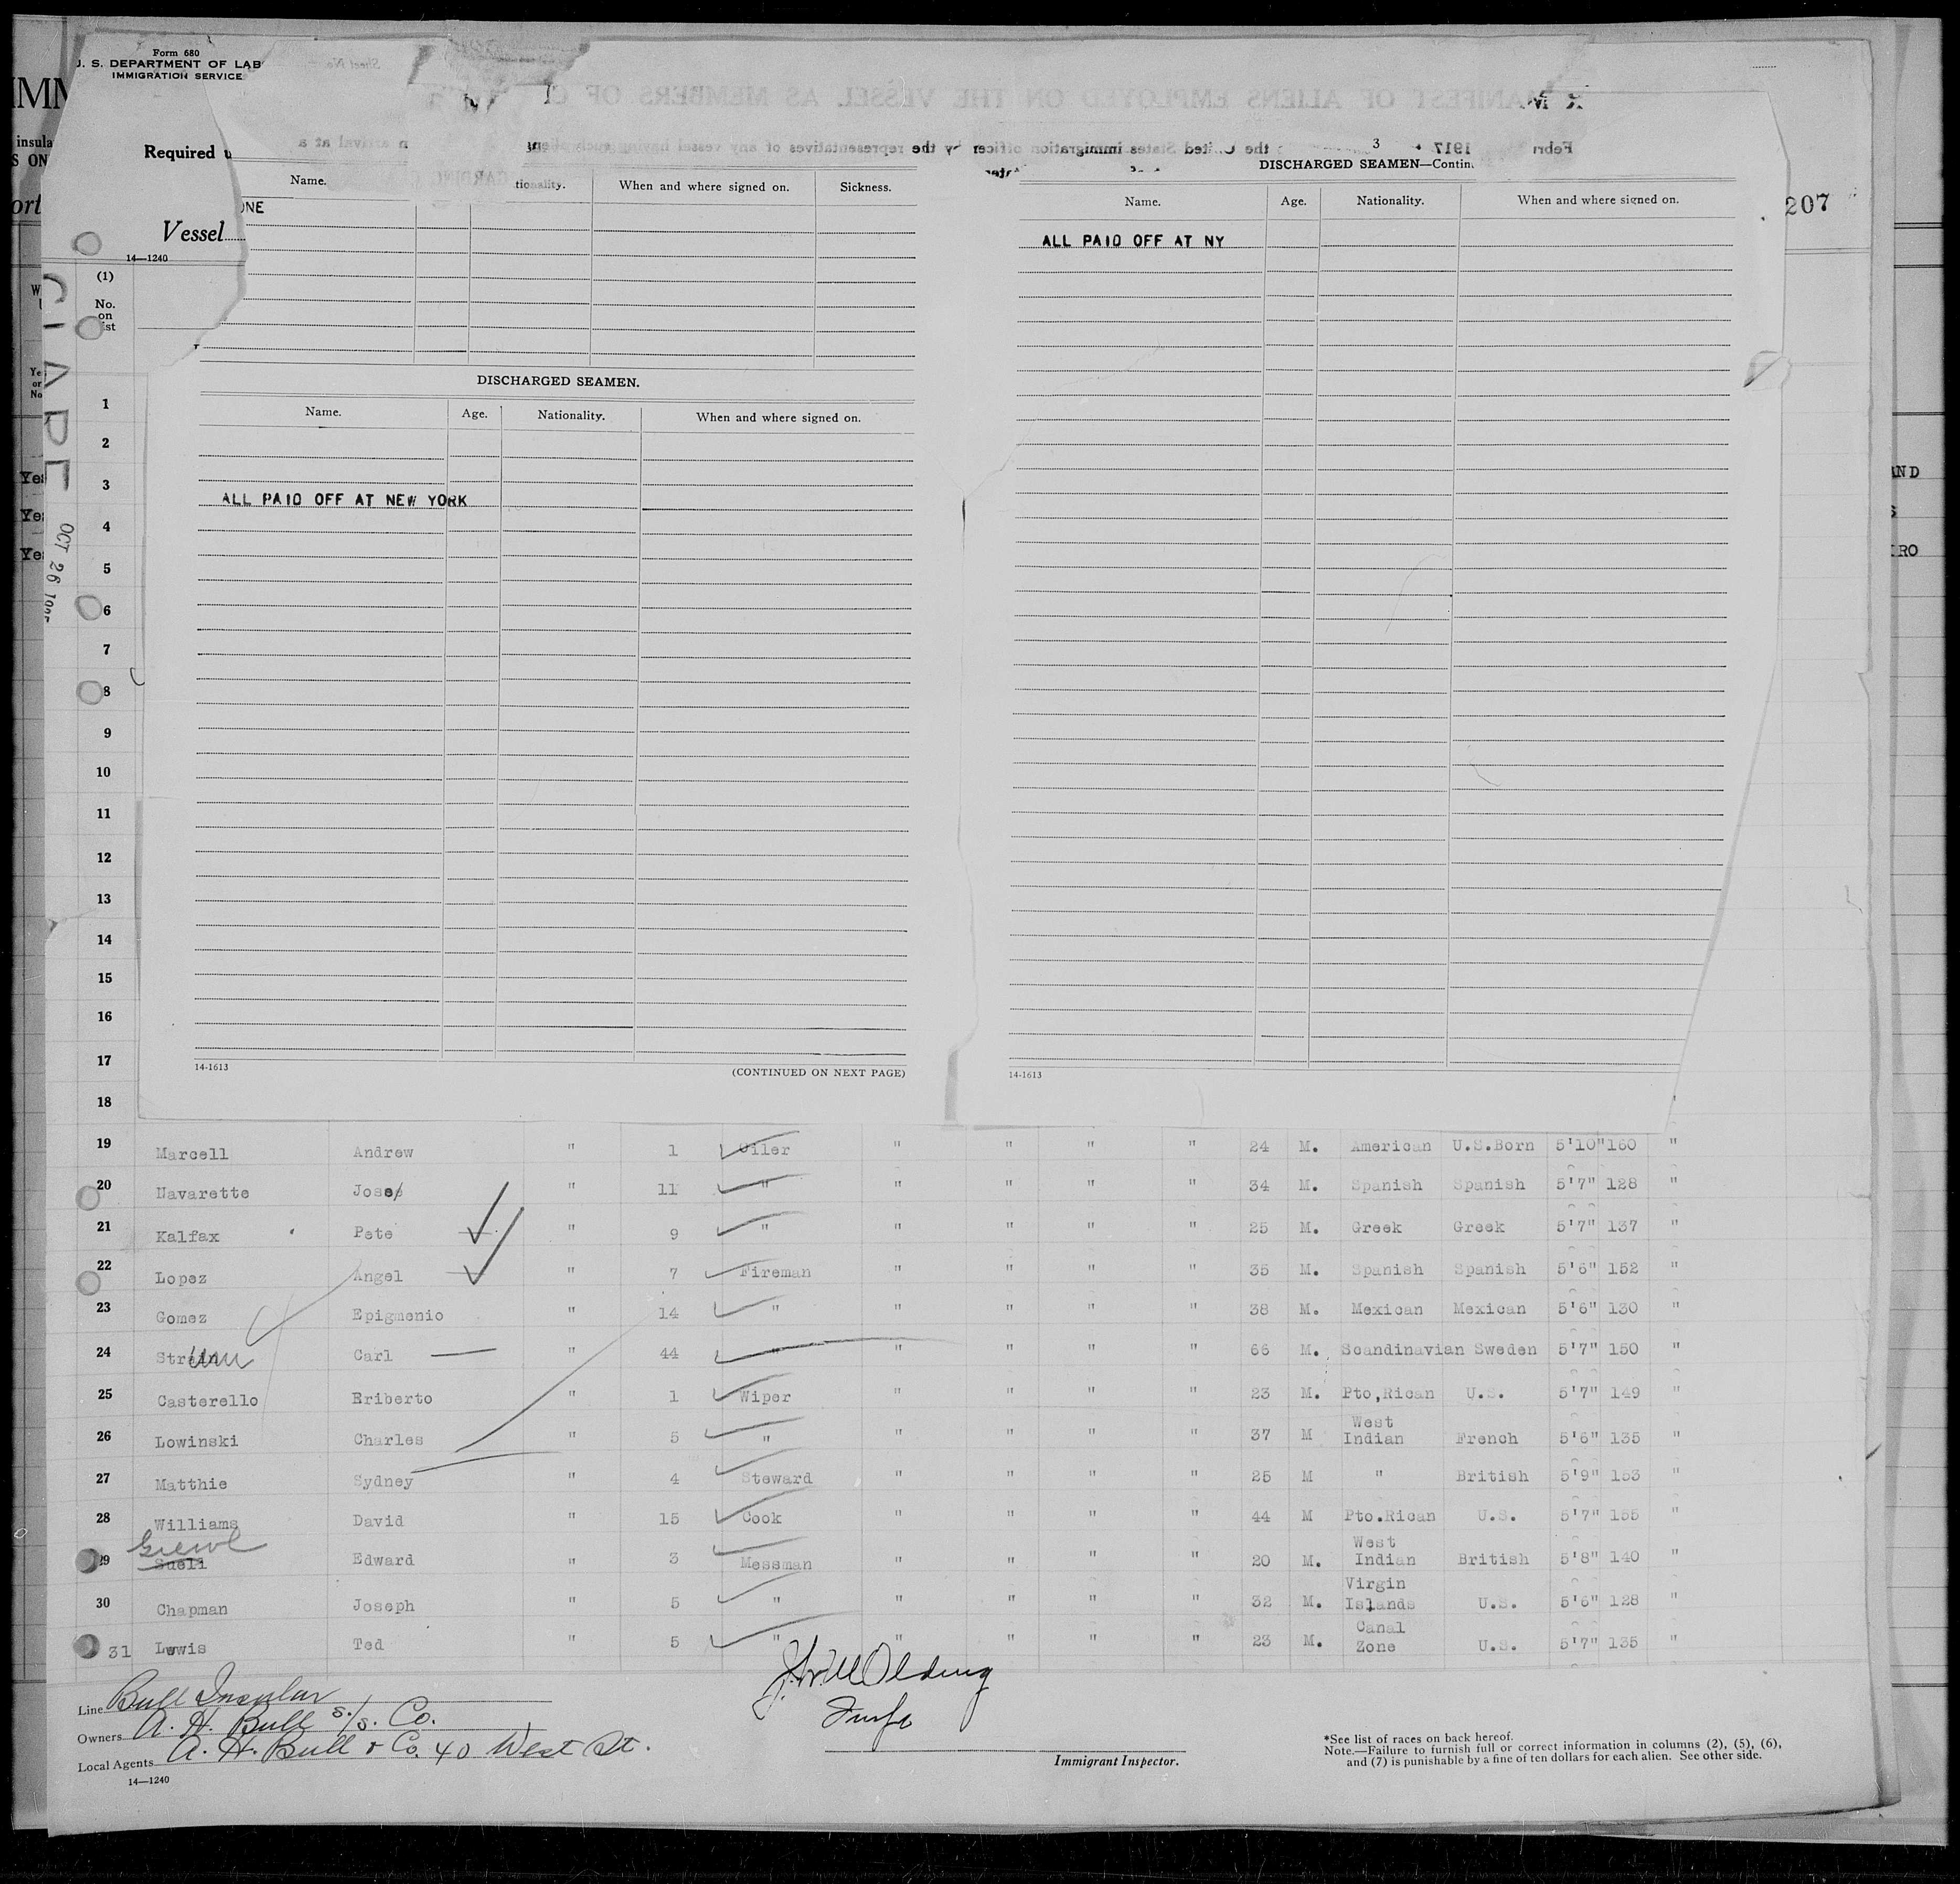 Form 680
U. S. DEPARTMENT OF LAB
IMMIGRATION SERVICE
Required
Vessel
14—1240
(1)
No. on list
207
Name. Nationality. When and where signed on. Sickness.
ONE
DISCHARGED SEAMEN.
Name. Age. Nationality. When and where signed on.
ALL PAID OFF AT NEW YORK
14-1613 (CONTINUED ON NEXT PAGE)
3
DISCHARGED SEAMEN—Contin.
Name. Age. Nationality. When and where signed on.
ALL PAID OFF AT NY
14-1613
OCT 26
1
2
3
4
5
6
7
8
9
10
11
12
13
14
15
16
17
18
19 Marcell Andrew " 1 Oiler " " " " 24 M. American U.S.Born 5'10" 160 "
20 Navarette Jose " 11 " " " " " 34 M. Spanish Spanish 5'7" 128 "
21 Kalfax Pete " 9 " " " " " 25 M. Greek Greek 5'7" 137 "
22 Lopez Angel " 7 Fireman " " " " 35 M. Spanish Spanish 5'6" 152 "
23 Gomez Epigmenio " 14 " " " " " 38 M. Mexican Mexican 5'6" 130 "
24 Carl " 44 " " " " " 66 M. Scandinavian Sweden 5'7" 150 "
25 Casterello Eriberto " 1 Wiper " " " " 23 M. Pto,Rican U.S. 5'7" 149 "
26 Lowinski Charles " 5 " " " " " 37 M West Indian French 5'6" 135 "
27 Matthie Sydney " 4 Steward " " " " 25 M " British 5'9" 153 "
28 Williams David " 15 Cook " " " " 44 M Pto.Rican U.S. 5'7" 155 "
29 Edward " 3 Messman " " " " 20 M. West Indian British 5'8" 140 "
30 Chapman Joseph " 5 " " " " " 32 M. Virgin Islands U.S. 5'6" 128 "
31 Lewis Ted " 5 " " " " " 23 M. Canal Zone U.S. 5'7" 135 "
Line Bull Insular
Owners A. H. Bull s./s. Co.
Local Agents A. H. Bull & Co. 40 West St.
14—1240
Immigrant Inspector.
*See list of races on back hereof.
Note.—Failure to furnish full or correct information in columns (2), (5), (6),
and (7) is punishable by a fine of ten dollars for each alien. See other side.